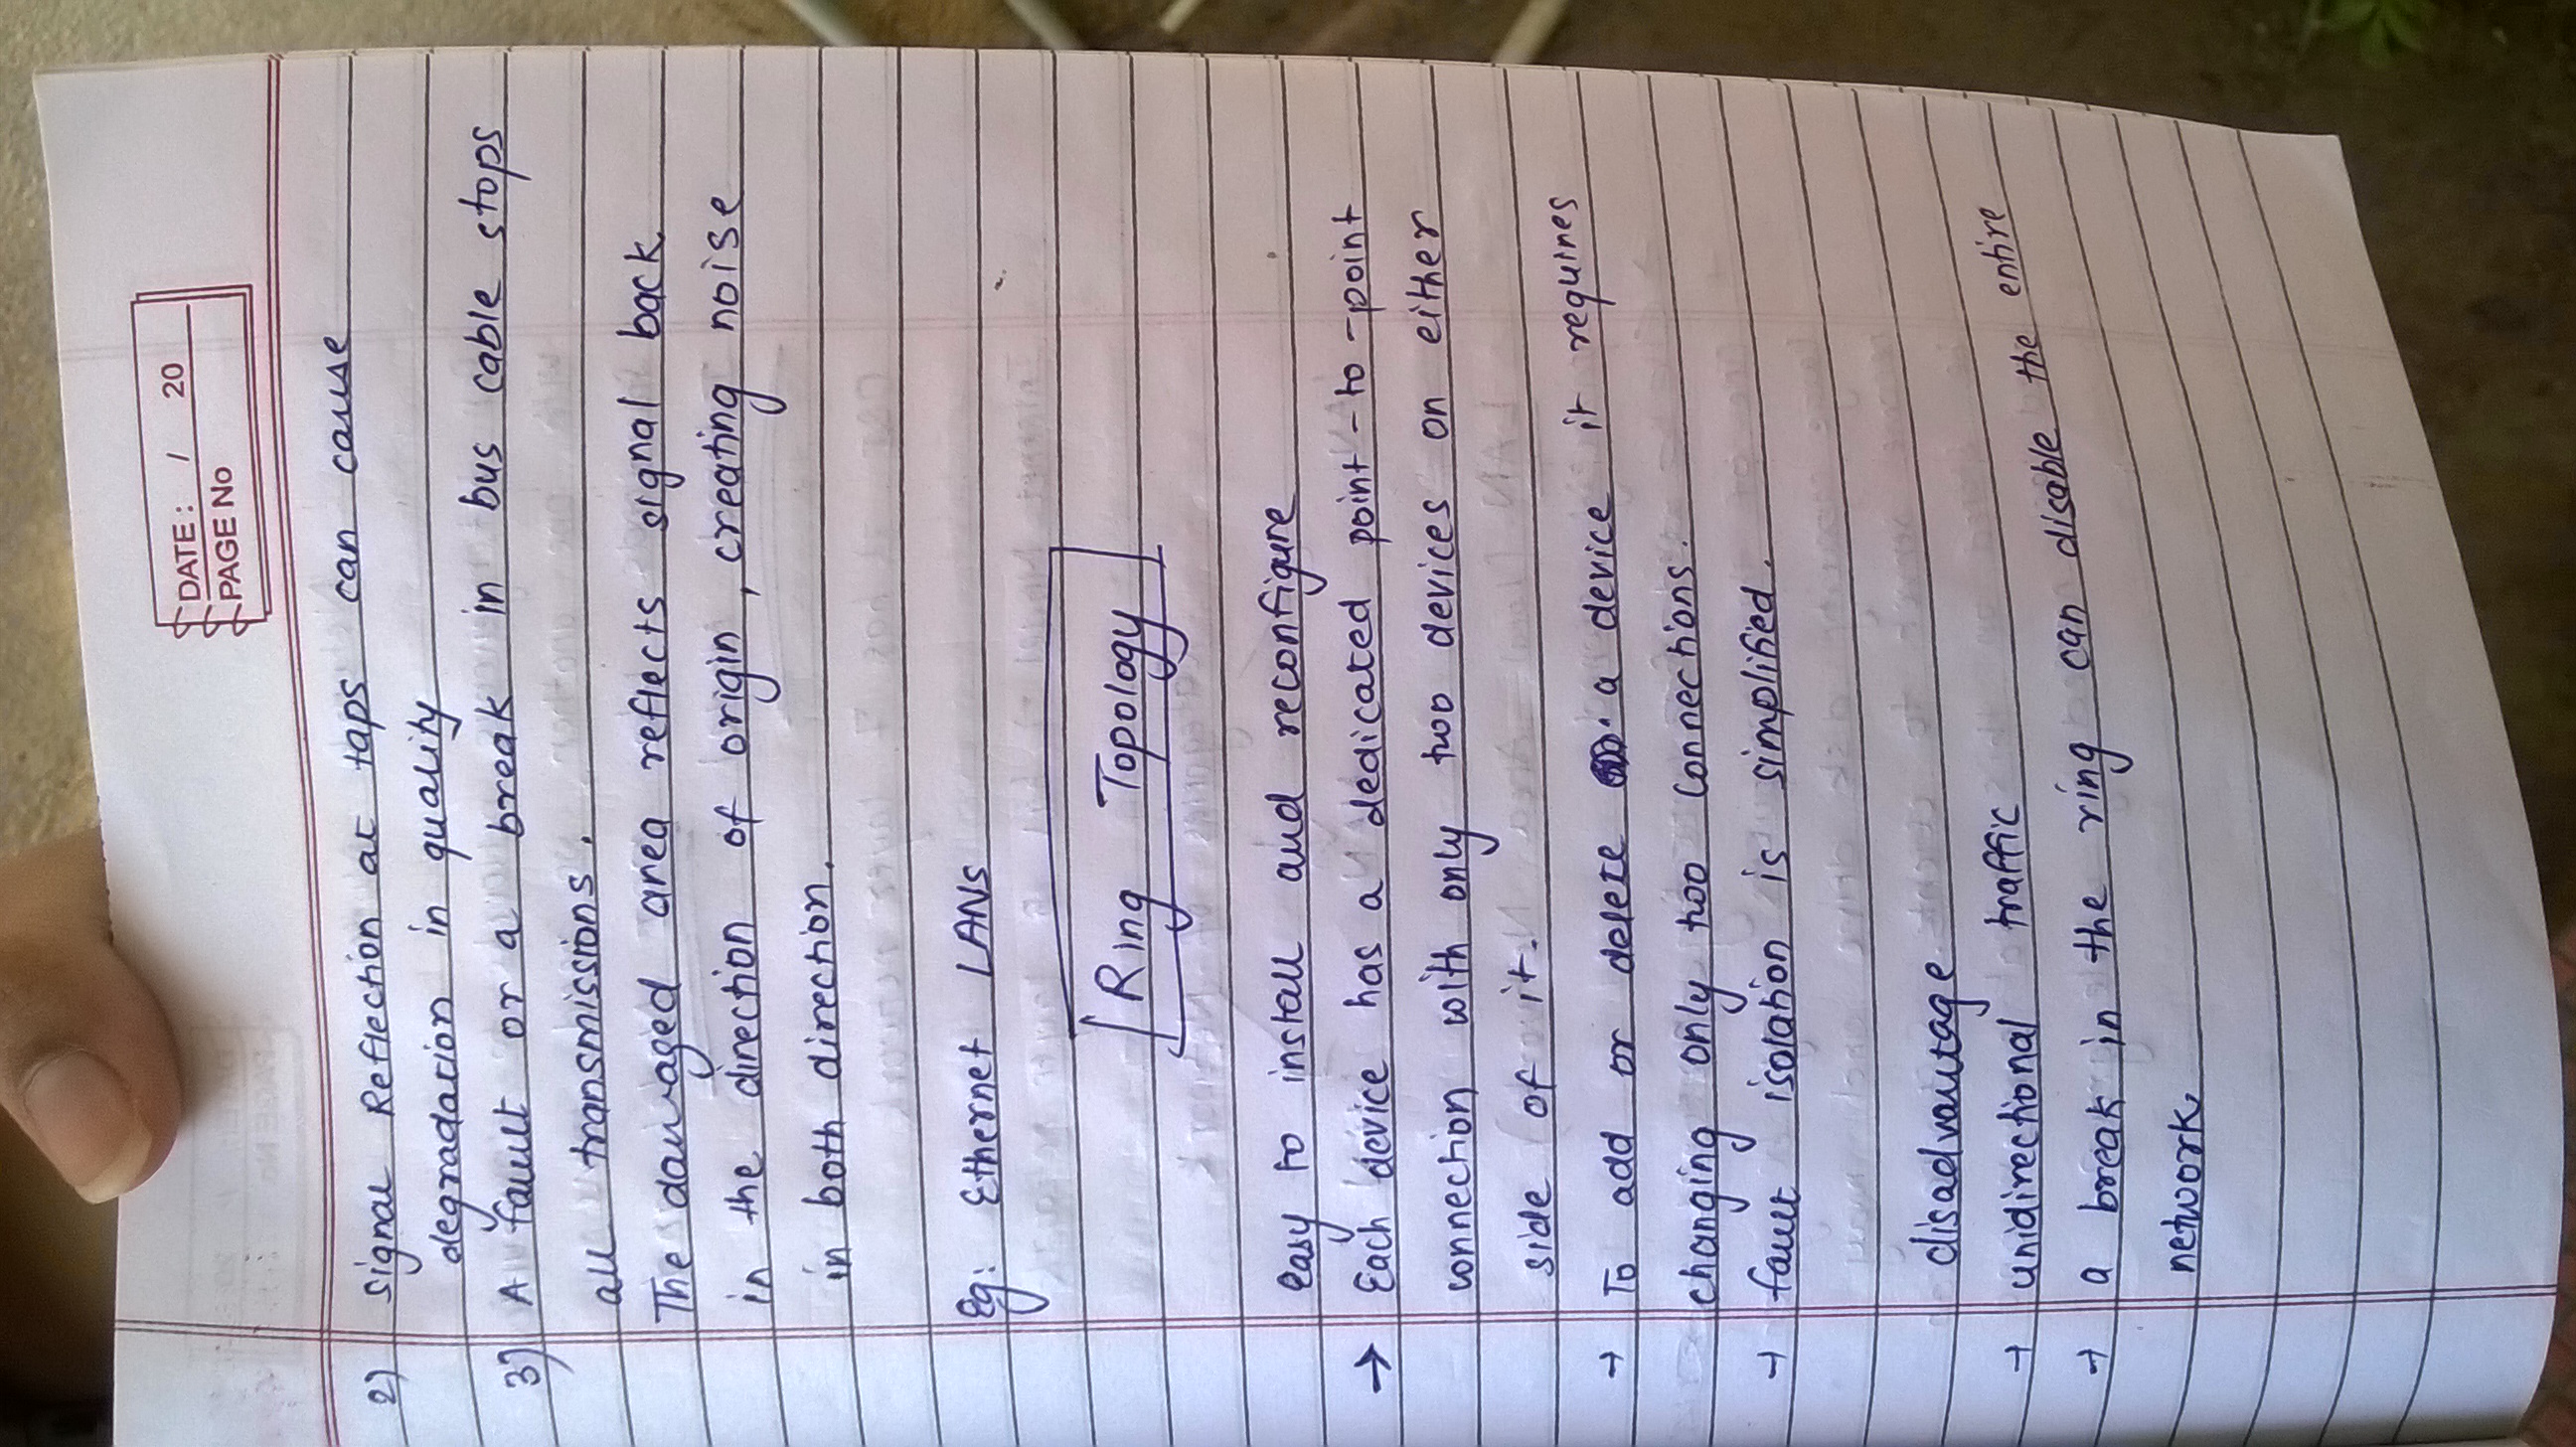 DATE: / 20
PAGE No
2) Signal Reflection at taps can cause
degradation in quality
3) A fault or a break in bus cable stops
all transmissions.
The damaged area reflects signal back
in the direction of origin, creating noise
in both direction.
Eg: Ethernet LANs
Ring Topology
easy to install and reconfigure
→ Each device has a dedicated point-to-point
connection with only two devices on either
side of it.
→ To add or delete a device it requires
changing only two connections.
→ fault isolation is simplified.
disadvantage
→ unidirectional traffic
→ a break in the ring can disable the entire
network.